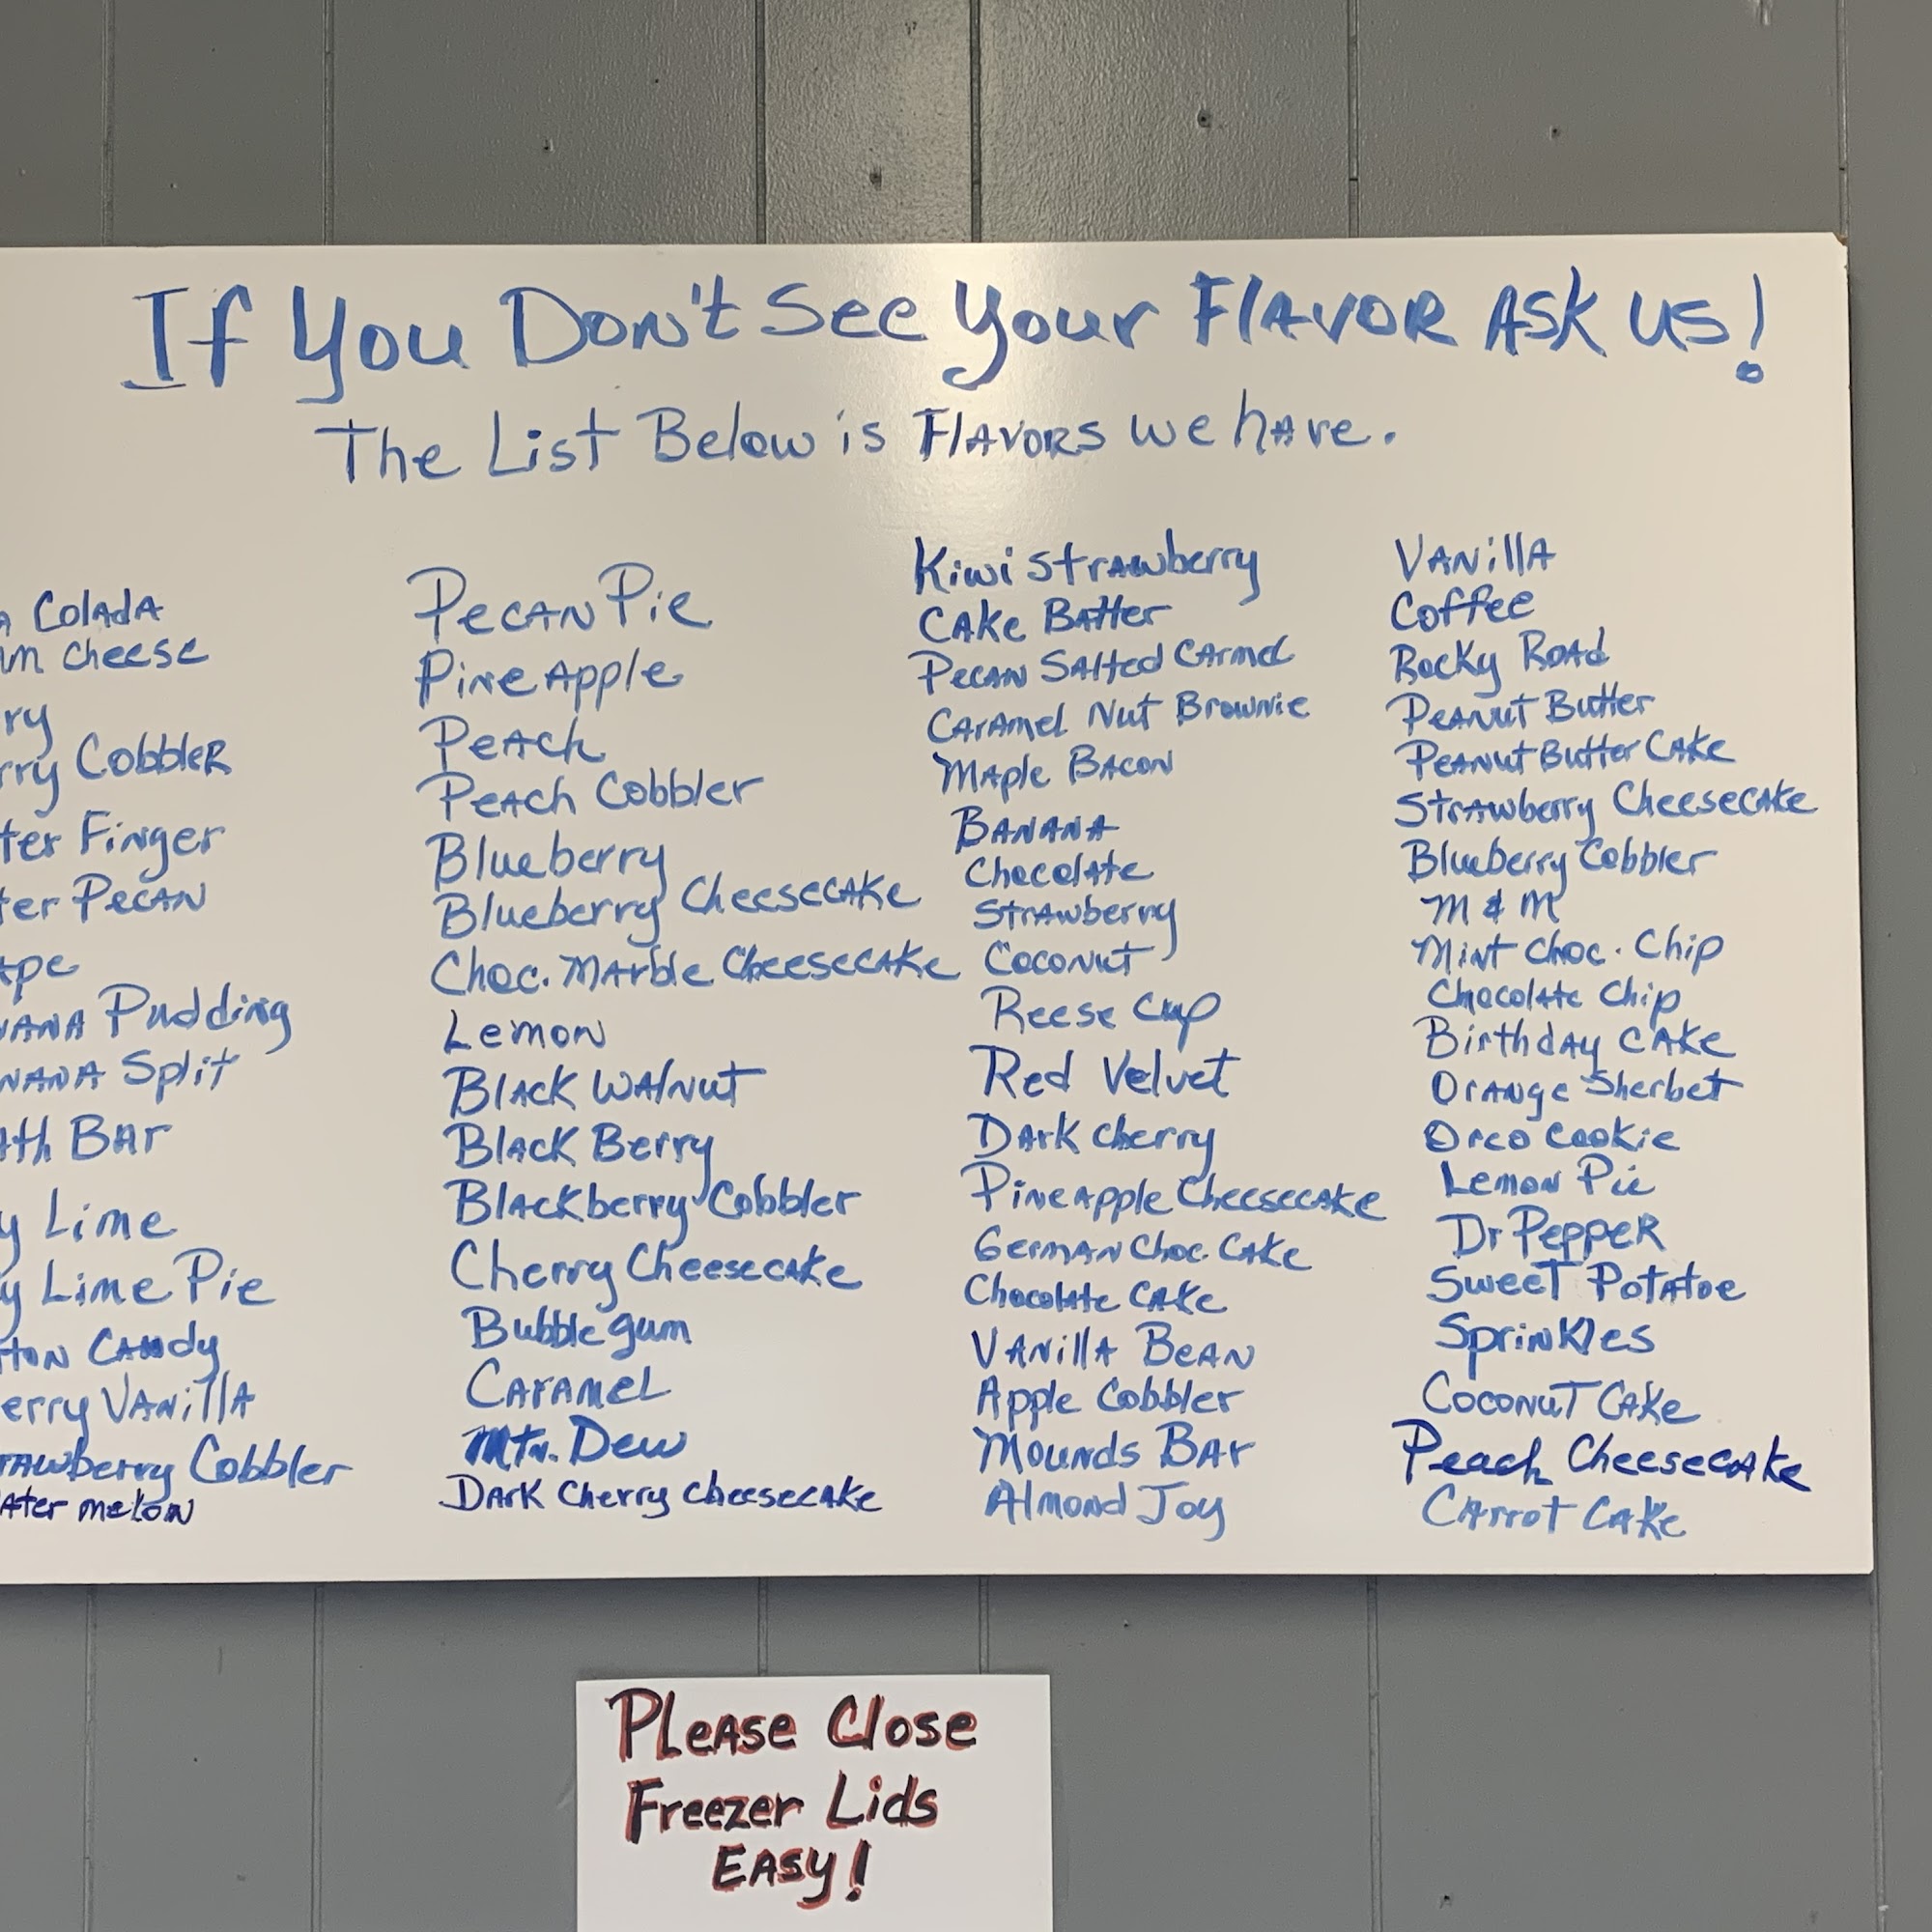 If You Don't See Your Flavor Ask Us!
The List Below is Flavors we have.
Colada
Cheese
Cobbler
Finger
Pecan
Pudding
Split
Bar
Lime
Lime Pie
Candy
Vanilla
Cobbler
melon
Pecan Pie
Pine Apple
Peach
Peach Cobbler
Blueberry
Blueberry Cheesecake
Choc. Marble Cheesecake
Lemon
Black Walnut
Black Berry
Blackberry Cobbler
Cherry Cheesecake
Bubble gum
Caramel
Mtn. Dew
Dark Cherry Cheesecake
Kiwi Strawberry
Cake Batter
Pecan Salted Carmel
Caramel Nut Brownie
Maple Bacon
Banana
Chocolate
Strawberry
Coconut
Reese Cup
Red Velvet
Dark Cherry
Pineapple Cheesecake
German Choc. Cake
Chocolate Cake
Vanilla Bean
Apple Cobbler
Mounds Bar
Almond Joy
Vanilla
Coffee
Rocky Road
Peanut Butter
Peanut Butter Cake
Strawberry Cheesecake
Blueberry Cobbler
M & M
Mint Choc. Chip
Chocolate Chip
Birthday Cake
Orange Sherbet
Oreo Cookie
Lemon Pie
Dr Pepper
Sweet Potatoe
Sprinkles
Coconut Cake
Peach Cheesecake
Carrot Cake
Please Close
Freezer Lids
Easy!